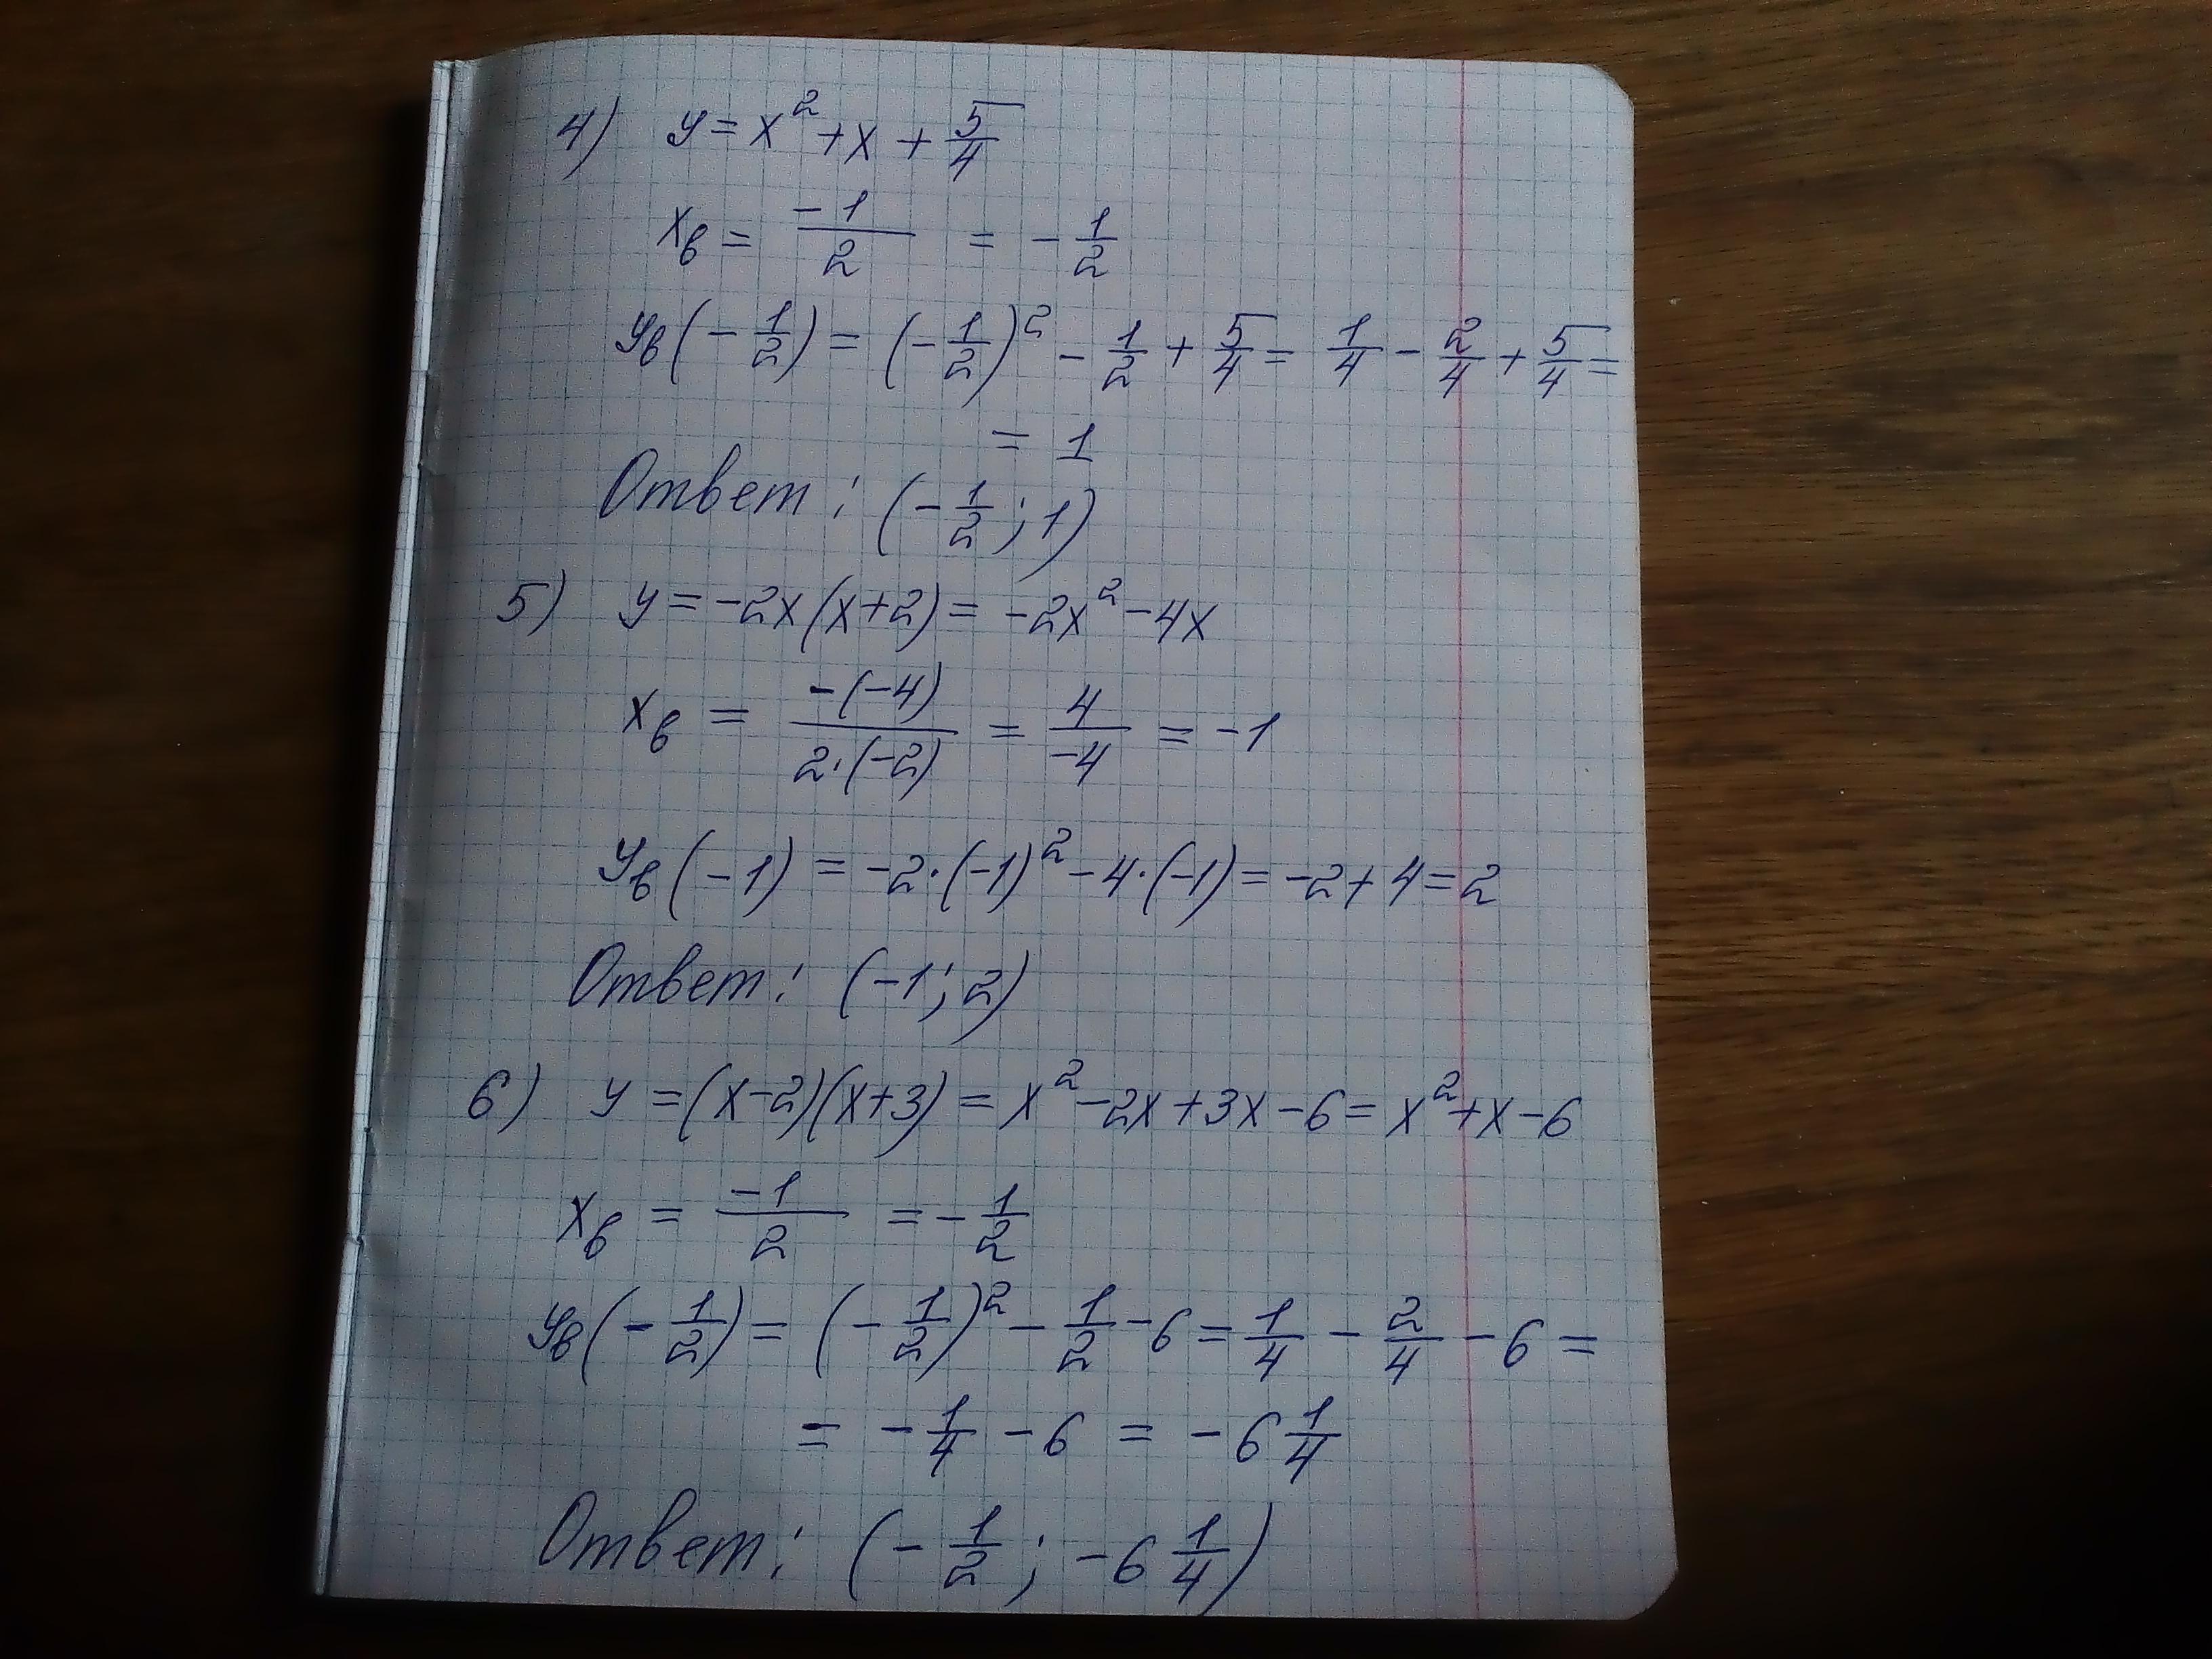 4) y = x² + x + 5/4
xв = -1/2 = -1/2
yв(-1/2) = (-1/2)² - 1/2 + 5/4 = 1/4 - 2/4 + 5/4 =
= 1
Ответ: (-1/2; 1)
5) y = -2x(x+2) = -2x² - 4x
xв = -(-4)/2·(-2) = 4/-4 = -1
yв(-1) = -2·(-1)² - 4·(-1) = -2 + 4 = 2
Ответ: (-1; 2)
6) y = (x-2)(x+3) = x² - 2x + 3x - 6 = x² + x - 6
xв = -1/2 = -1/2
yв(-1/2) = (-1/2)² - 1/2 - 6 = 1/4 - 2/4 - 6 =
= -1/4 - 6 = -6 1/4
Ответ: (-1/2; -6 1/4)